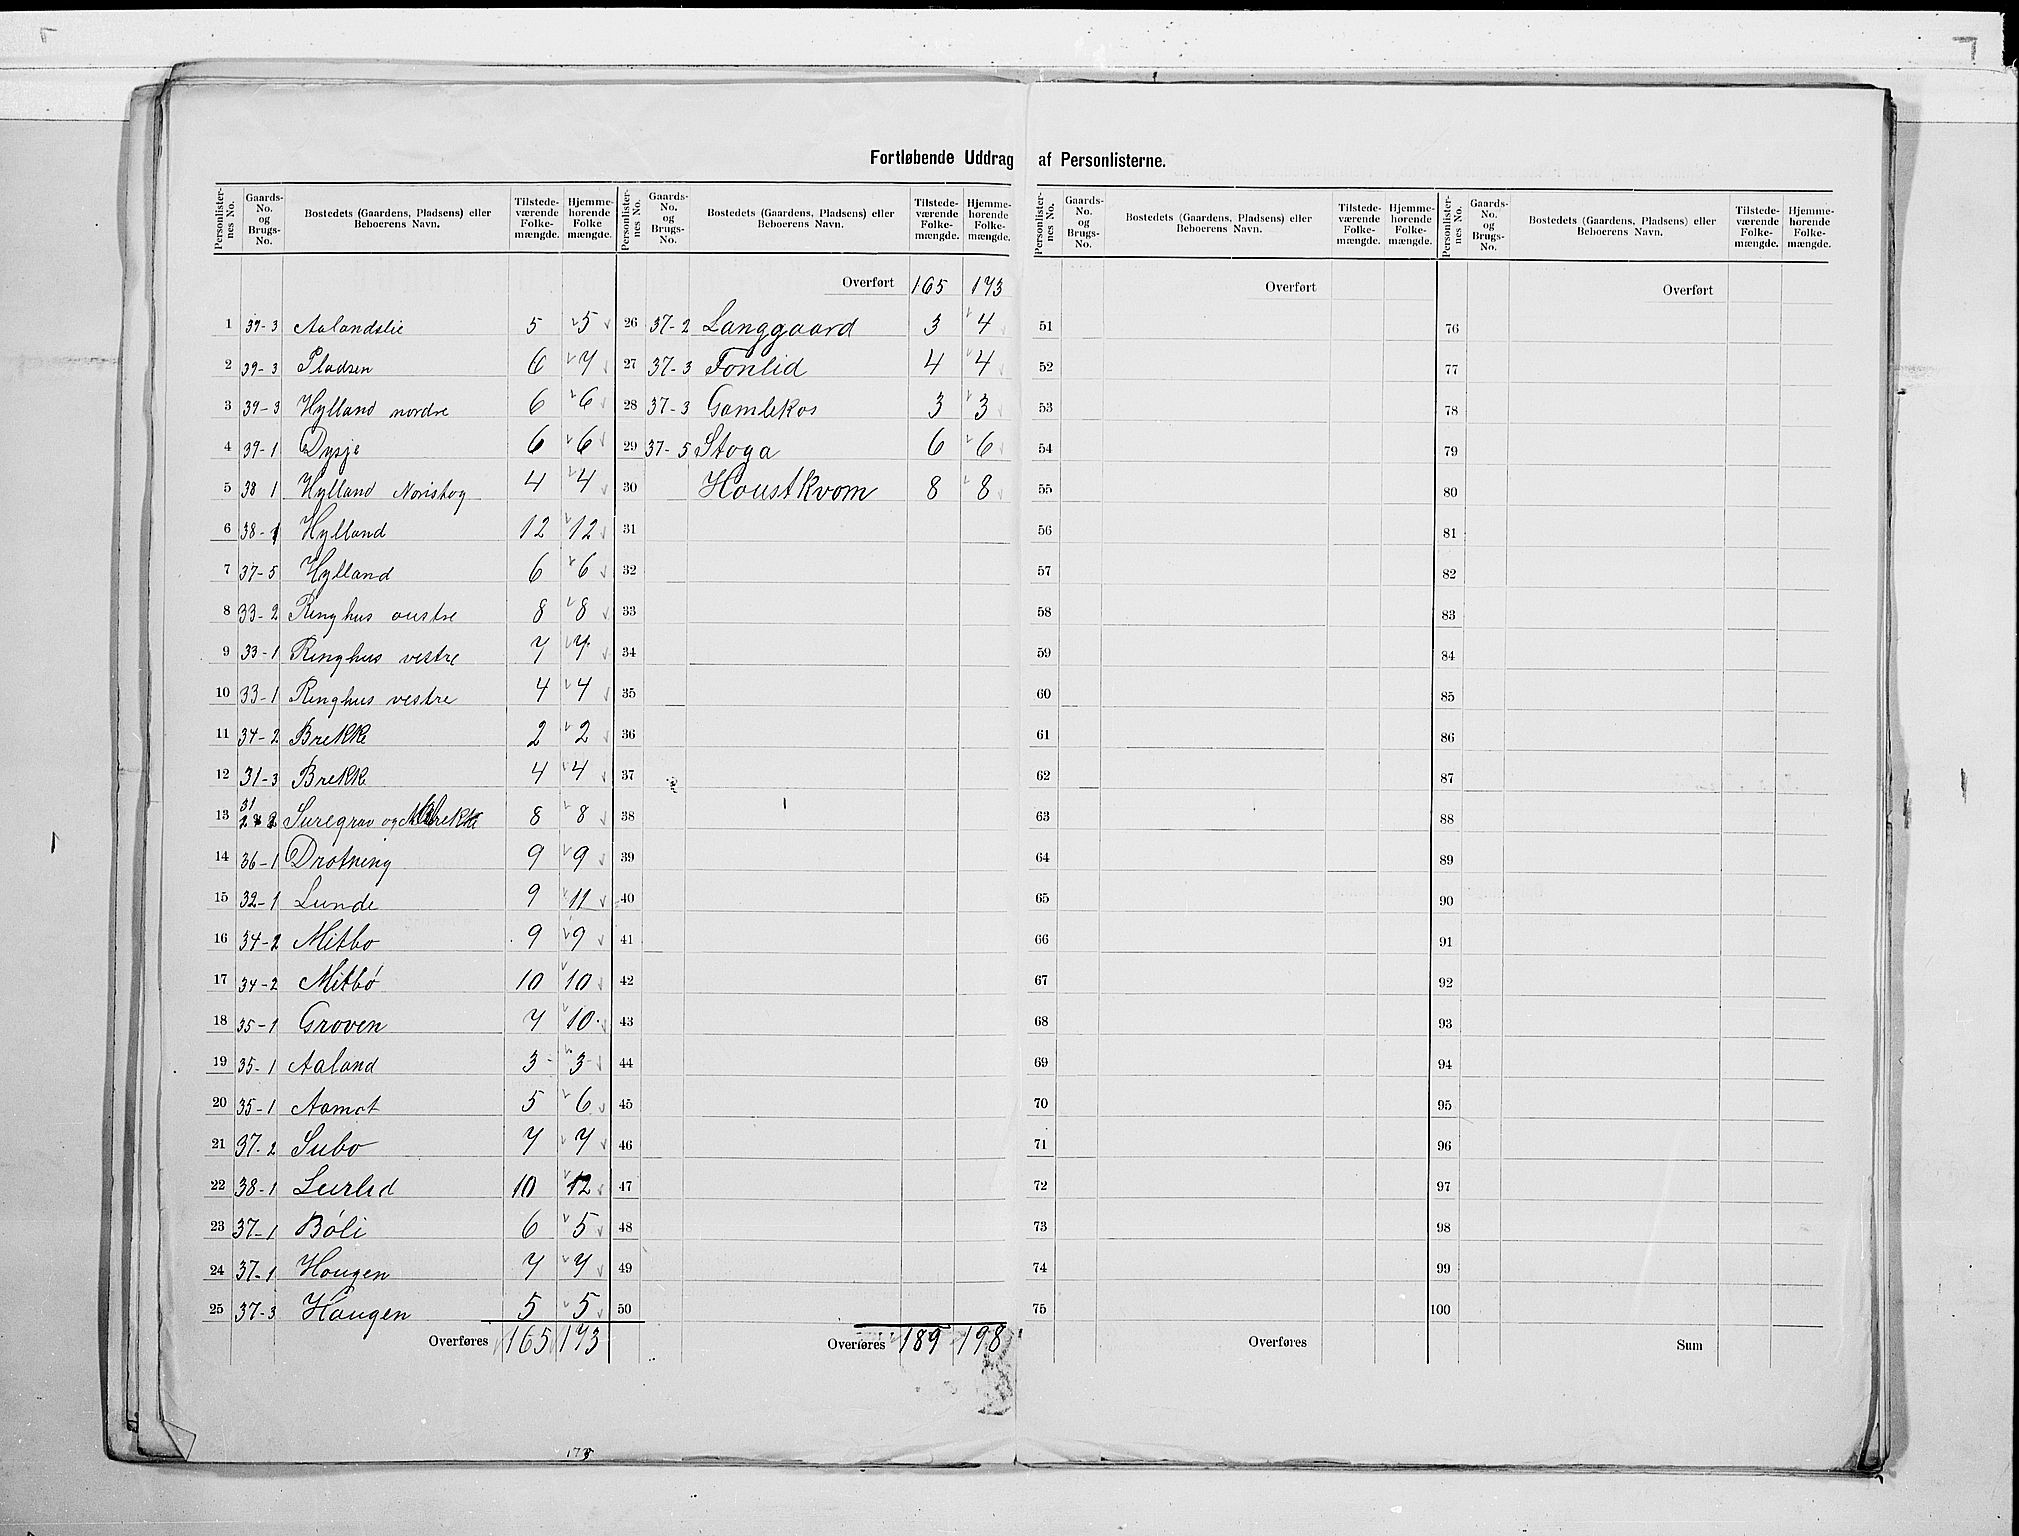 Fortløbende Uddrag af Personlisterne.
Personlister-nes No. Gaards-No. og Brugs-No. Bostedets (Gaardens, Pladsens) eller Beboerens Navn. Tilstede-værende Folke-mængde. Hjemme-hørende Folke-mængde.
1 39-3 Aalandslie 5 5
2 39-3 Pladsen 6 7
3 39-3 Hylland nordre 6 6
4 39-1 Dysje 6 6
5 38 1 Hylland Noristog 4 4
6 38-1 Hylland 12 12
7 37-5 Hylland 6 6
8 33-2 Ringhus oustre 8 8
9 33-1 Ringhus vestre 7 7
10 33-1 Ringhus vestre 4 4
11 34-2 Brekke 2 2
12 31-3 Brekke 4 4
13 31 Suregrav og 8 8
14 36-1 Drotning 9 9
15 32-1 Lunde 9 11
16 34-2 Mitbo 9 9
17 34-2 Mitbø 10 10
18 35-1 Groven 7 10
19 35-1 Aaland 3 3
20 35-1 Aamot 5 6
21 37-2 Subo 7 7
22 38-1 Leirlid 10 12
23 37-1 Bøli 6 5
24 37-1 Hougen 7 7
25 37-3 Haugen 5 5
Overføres 165 173
Personlister-nes No. Gaards-No. og Brugs-No. Bostedets (Gaardens, Pladsens) eller Beboerens Navn. Tilstede-værende Folke-mængde. Hjemme-hørende Folke-mængde.
Overført 165 173
26 37-2 Langgaard 3 4
27 37-3 Fonlid 4 4
28 37-3 Gamlekas 3 3
29 37-5 Stoga 6 6
30 Houstkvom 8 8
31
32
33
34
35
36
37
38
39
40
41
42
43
44
45
46
47
48
49
50
Overføres 189 198
Personlister-nes No. Gaards-No. og Brugs-No. Bostedets (Gaardens, Pladsens) eller Beboerens Navn. Tilstede-værende Folke-mængde. Hjemme-hørende Folke-mængde.
Overført
51
52
53
54
55
56
57
58
59
60
61
62
63
64
65
66
67
68
69
70
71
72
73
74
75
Overføres
Personlister-nes No. Gaards-No. og Brugs-No. Bostedets (Gaardens, Pladsens) eller Beboerens Navn. Tilstede-værende Folke-mængde. Hjemme-hørende Folke-mængde.
Overført
76
77
78
79
80
81
82
83
84
85
86
87
88
89
90
91
92
93
94
95
96
97
98
99
100
Sum